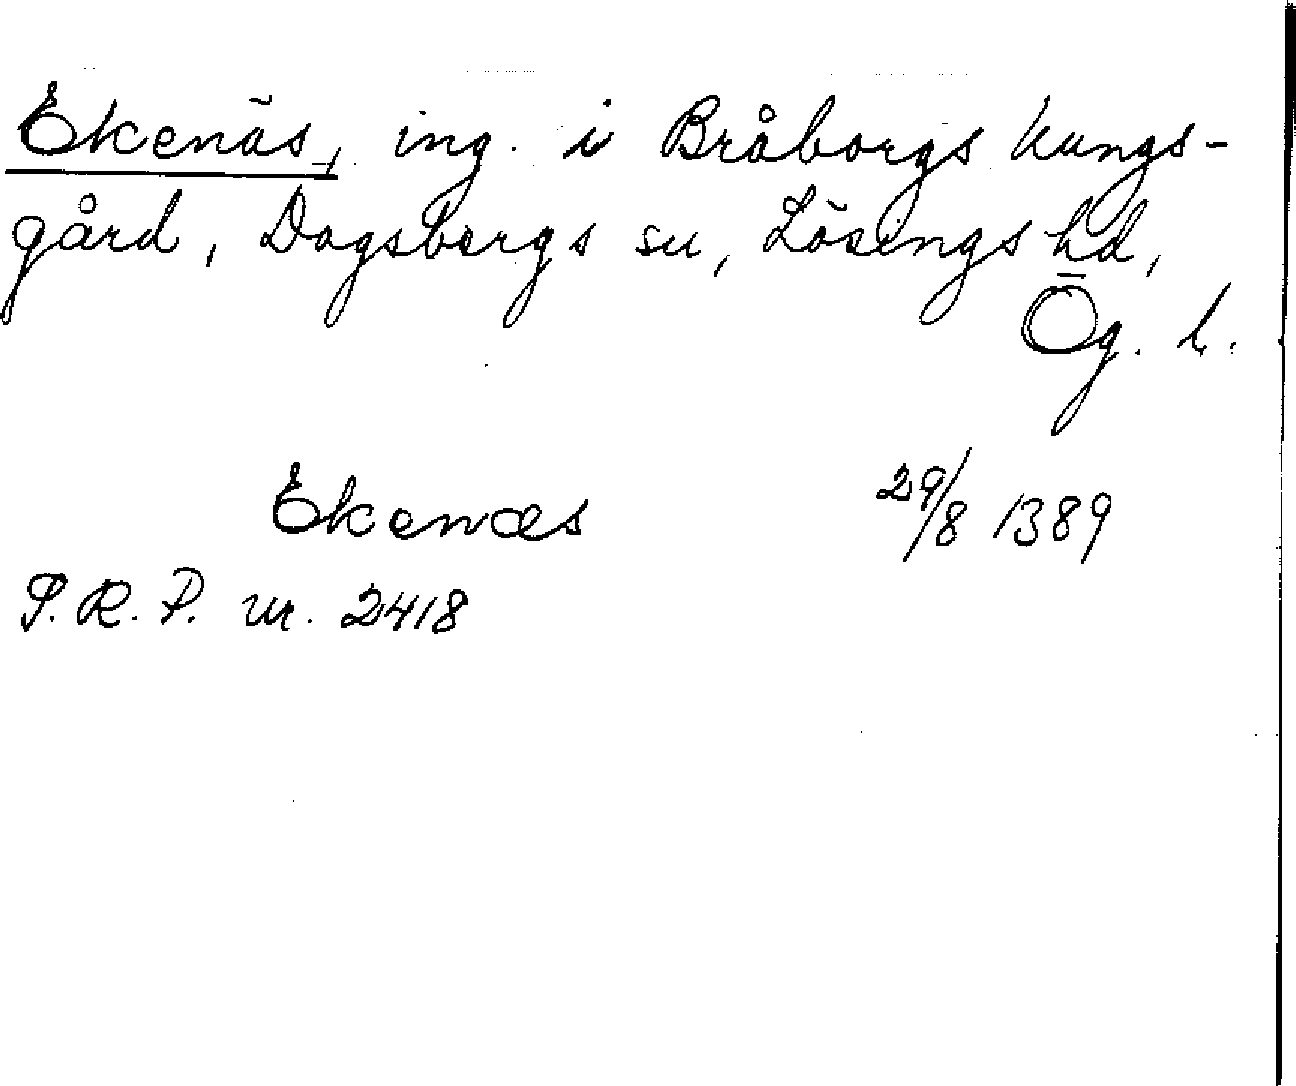 Ekenäs, ing. i Bråborgs kungs-
gård, Dagsbergs sn, Lösings hd,
Ög. l.
Ekenæs 29/8 1389
S.R.P. nr. 2418